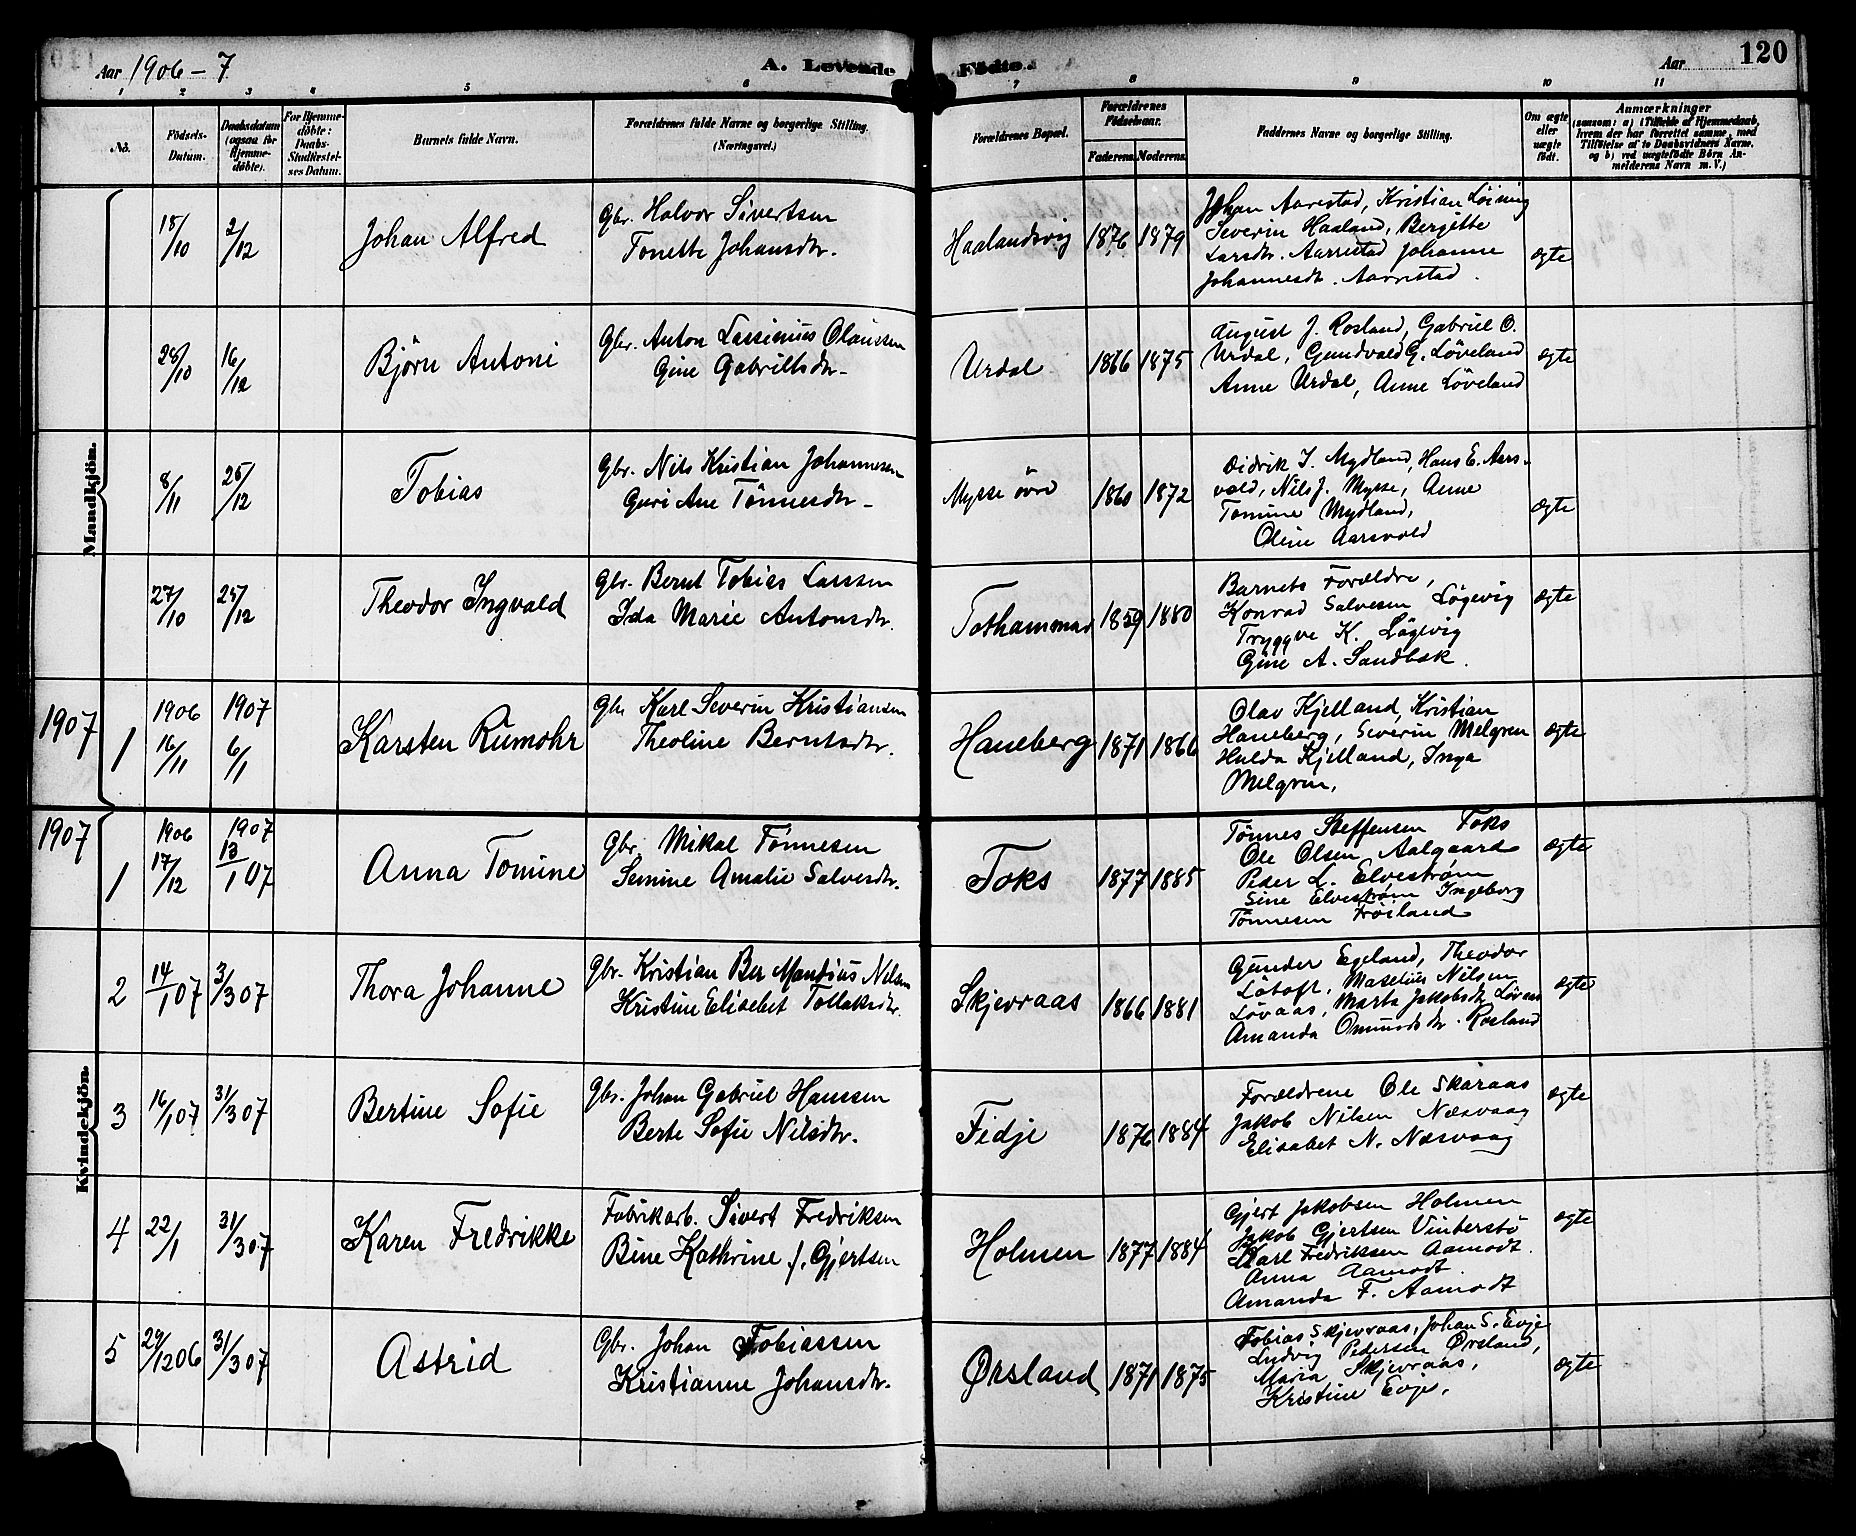 Aar 1906-7
A. Levende Födte.
Aar
120
1 2 3 4 5 6 7 8 9 10 11
No.
Födsels-Datum.
Daabsdatum (ogsaa for Hjemmedöbte).
For Hjemmedöbte: Daabs-Stadfæstelses Datum.
Barnets fulde Navn.
Forældrenes fulde Navne og borgerlige Stilling. (Næringsvei.)
Forældrenes Bopæl.
Forældrenes Födselsaar.
Faderens. Moderens.
Faddernes Navne og borgerlige Stilling.
Om ægte eller uægte födt.
Anmærkninger
(saasom: a) i Tilfælde af Hjemmedaab, hvem der har forrettet samme, med Tilföielse af to Daabsvidners Navne, og b) ved uægtefödte Börn Anmelderens Navn m. V.)
Mandkjön.
18/10 2/12 Johan Alfred
Gbr. Halvor Sivertsen
Tonette Johansdtr.
Haalandsvig 1876 1879
Johan Aarrestad, Kristian Löining
Severin Haaland, Bergitte
Larsdtr. Aarrestad Johanne
Johannesdt. Aarrestad.
ægte
28/10 16/12 Björn Antoni
Gbr. Anton Lassenius Olaussen
Gine Gabrielsdtr.
Urdal 1866 1875
August J. Rosland, Gabriel O.
Urdal, Gundvald G. Löveland
Anne Urdal, Anne Löveland
ægte
8/11 25/12 Tobias
Gbr. Nils Kristian Johannesen
Guri Ane Tönnesdtr.
Mysse övre 1860 1872
Didrik T. Mydland, Hans E. Aars-
vold, Nils J. Mysse, Anne
Tomine Mydland,
Oline Aarsvold
ægte
27/10 25/12 Theodor Ingvald
Gbr. Bernt Tobias Larssen
Ida Marie Antonsdtr.
Tothammar 1859 1880
Barnets Forældre,
Konrad Salvesen Lögevig
Tryggve K. Lögevig
Gine A. Sandbæk.
ægte
1907
1 1906 16/11 1907 6/1 Karsten Rumohr
Gbr. Karl Severin Kristiansen
Theoline Berntsdtr.
Haneberg 1871 1866
Olav Kjelland, Kristian
Haneberg, Severin Melgren
Hulda Kjelland, Inga
Melgren,
ægte
1907
Kvindekjön.
1 1906 17/12 1907 13/1 07 Anna Tomine
Gbr. Mikal Tönnesen
Semine Amalie Salvesdtr.
Foks 1877 1885
Tönnes Steffensen Foks
Ole Olsen Aalgaard
Peder L. Elvestrøm
Sine Elvestrøm Ingeborg
Tönnesen Fröiland
ægte
2 14/1 07 3/3 07 Thora Johanne
Gbr. Kristian Ber Mandius Nilsen
Kristine Elisebet Tollaksdtr.
Skjevraas 1866 1881
Gunder Egeland, Theodor
Lötoft, Maselius Nilsen
Lövaas, Marta Jakobsdt. Lövaas
Amanda Omundsdtr. Rosland
ægte
3 16/1 07 31/3 07 Bertine Sofie
Gbr. Johan Gabriel Hanssen
Berte Sofie Nilsdtr.
Fidje 1876 1884
Forældrene Ole Skaraas
Jakob Nilsen Næsvaag
Elisabet N. Næsvaag
ægte
4 22/1 31/3 07 Karen Fredrikke
Fabrikarb. Sivert Fredriksen
Bine Kathrine f. Gjertsen
Holmen 1877 1884
Gjert Jakobsen Holmen
Jakob Gjertsen Vinterstö
Karl Fredriksen Aamodt.
Anna Aamodt.
Amanda F. Aamodt
ægte
5 29/12 06 31/3 07 Astrid
Gbr. Johan Tobiassen
Kristianne Johansdtr.
Ørsland 1871 1875
Tobias Skjevraas, Johan S. Evje
Ludvig Pedersen Ørsland,
Maria Skjevraas,
Kristine Evje.
ægte